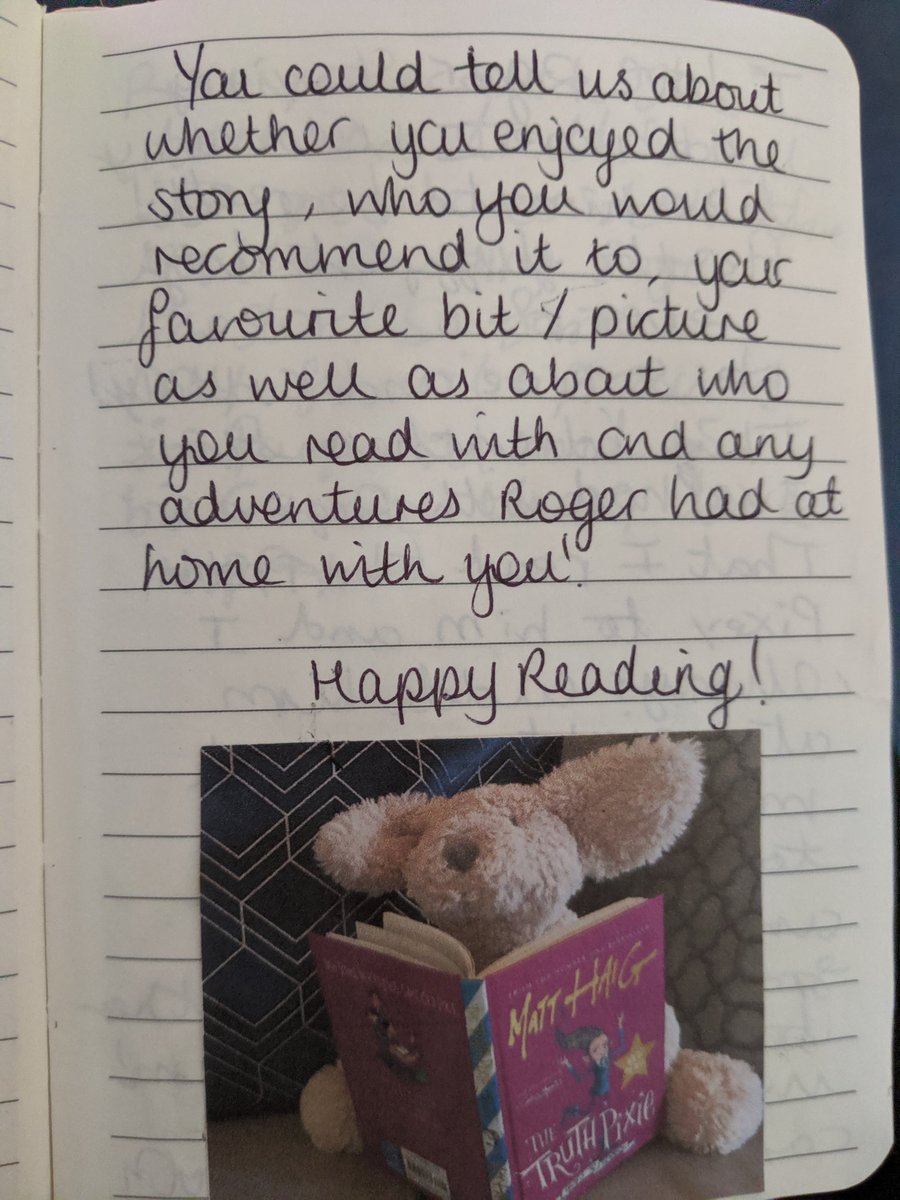 You could tell us about
whether you enjoyed the
story, who you would
recommend it to, your
favourite bit / picture
as well as about who
you read with and any
adventures Roger had at
home with you!
Happy Reading!
MATT HAIG
THE
TRUTH PIXIE